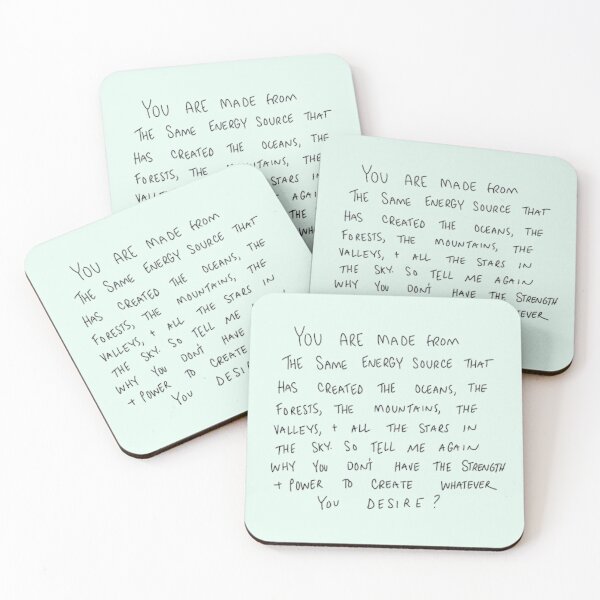 YOU ARE MADE from
THE SAME ENERGY SOURCE THAT
HAS CREATED THE OCEANS, THE
FORESTS, THE MOUNTAINS, THE
STARS IN
AGAIN
THE
YOU ARE MADE from
THE SAME ENERGY SOURCE THAT
HAS CREATED THE OCEANS, THE
FORESTS, THE MOUNTAINS, THE
VALLEYS, + ALL THE STARS IN
THE SKY. SO TELL ME AGAIN
WHY YOU DON'T HAVE THE STRENGTH
WHATEVER
YOU ARE MADE from
THE SAME ENERGY SOURCE THAT
HAS CREATED THE OCEANS, THE
FORESTS, THE MOUNTAINS, THE
VALLEYS, + ALL THE STARS IN
THE SKY. SO TELL ME
WHY YOU DON'T HAVE
+ POWER TO CREATE
YOU DESIRE
YOU ARE MADE from
THE SAME ENERGY SOURCE THAT
HAS CREATED THE OCEANS, THE
FORESTS, THE MOUNTAINS, THE
VALLEYS, + ALL THE STARS IN
THE SKY. SO TELL ME AGAIN
WHY YOU DON'T HAVE THE STRENGTH
+ POWER TO CREATE WHATEVER
YOU DESIRE?